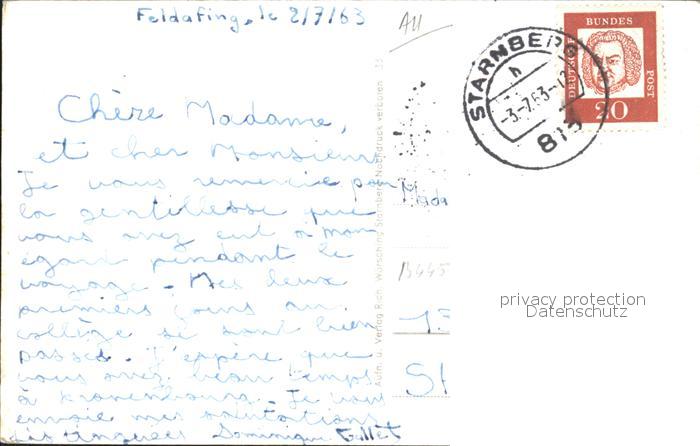 Feldafing, le 2/7/63
Chère Madame,
et cher Monsieur
Je vous remercie pour
la gentillesse que
vous avez eut à mon
égard pendant le
voyage - Mes deux
premiers jours au
collège se sont bien
passés. J'espère que
vous avez beau temps
à Kronenbourg - Je vous
envoie mes salutations
distinguées Dominique
Aufn. u. Verlag Rich. Wörsching, Starnberg Nachdruck verboten 35
STARNBERG
h
-3.-7.63-
813
DEUTSCHE
BUNDES
POST
20
Mada
B445
13
St
privacy protection
Datenschutz